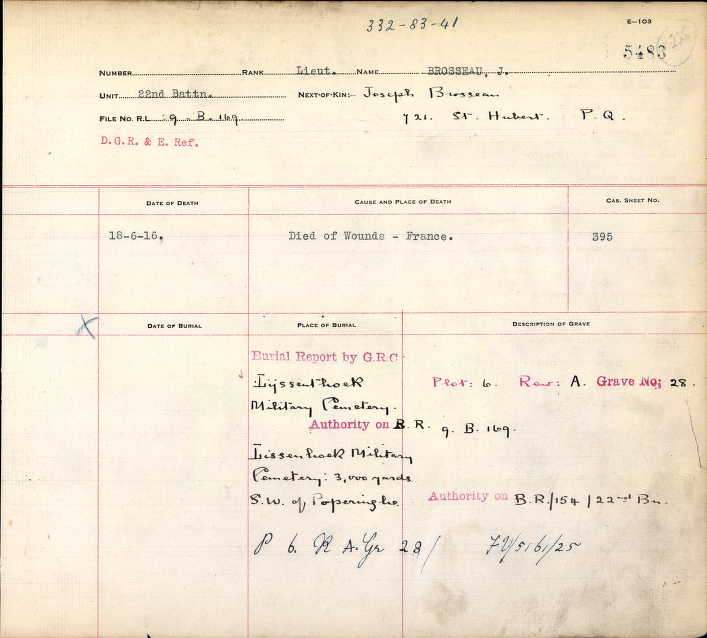 332-83-41
E-103
5483
NUMBER RANK Lieut. NAME BROSSEAU, J.
UNIT 22nd Battn. NEXT-OF-KIN:- Joseph Brosseau
FILE NO. R.L. 9. B. 169. 721. St. Hubert. P.Q.
D.G.R. & E. Ref.
DATE OF DEATH CAUSE AND PLACE OF DEATH CAS. SHEET NO.
18-6-16. Died of Wounds - France. 395
X
DATE OF BURIAL PLACE OF BURIAL DESCRIPTION OF GRAVE
Burial Report by G.R.C.
Lijssenthoek Plot: 6. Row: A. Grave No; 28.
Military Cemetery.
Authority on B.R. 9. B. 169.
Lissenhoek Military
Cemetery: 3,000 yards
S.W. of Poperinghe. Authority on B.R/154/22nd Bn.
P 6. R A. Gr 28/